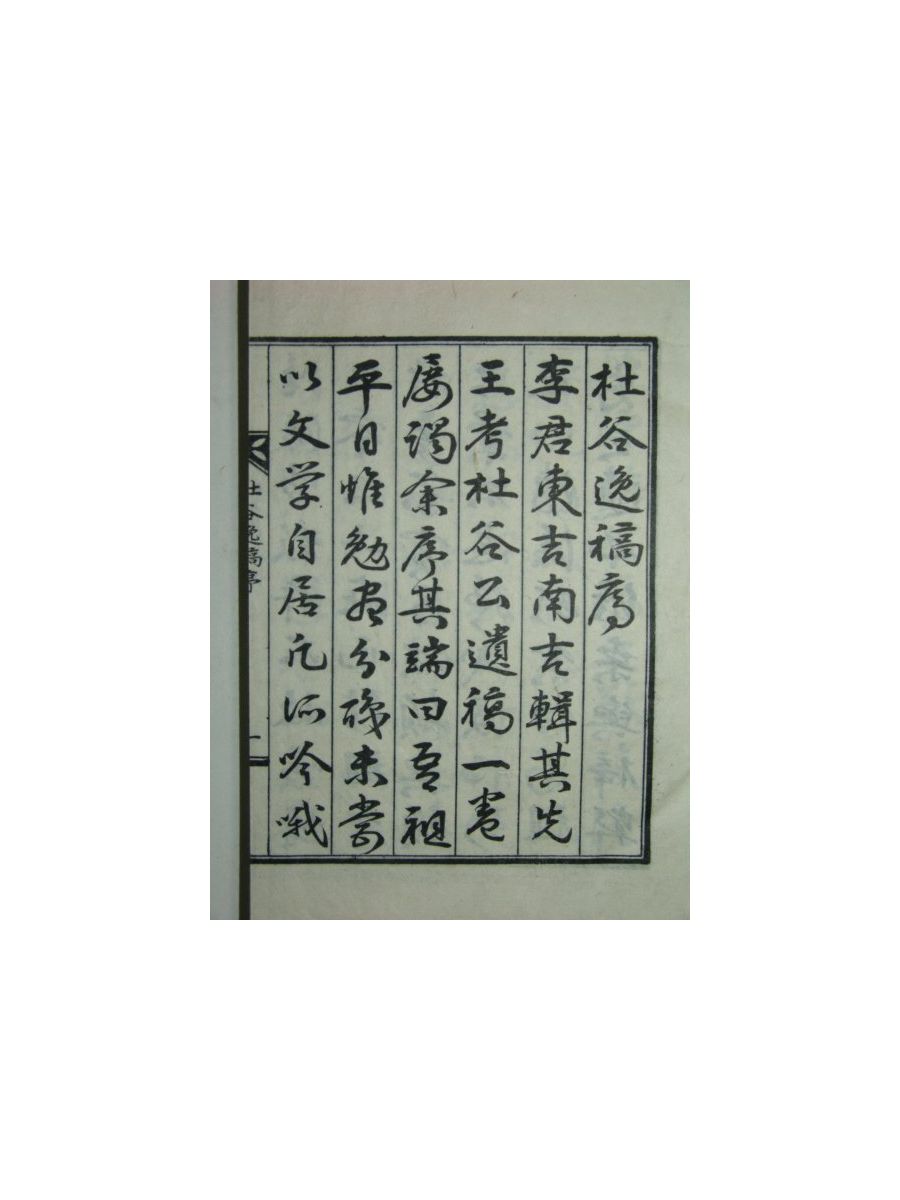 杜谷逸稿序
李君東吉南吉輯其先
王考杜谷公遺稿一卷
屡謁余序其端曰吾祖
平日惟勉盡分職未嘗
以文学自居凡所吟哦
杜谷逸稿序
一